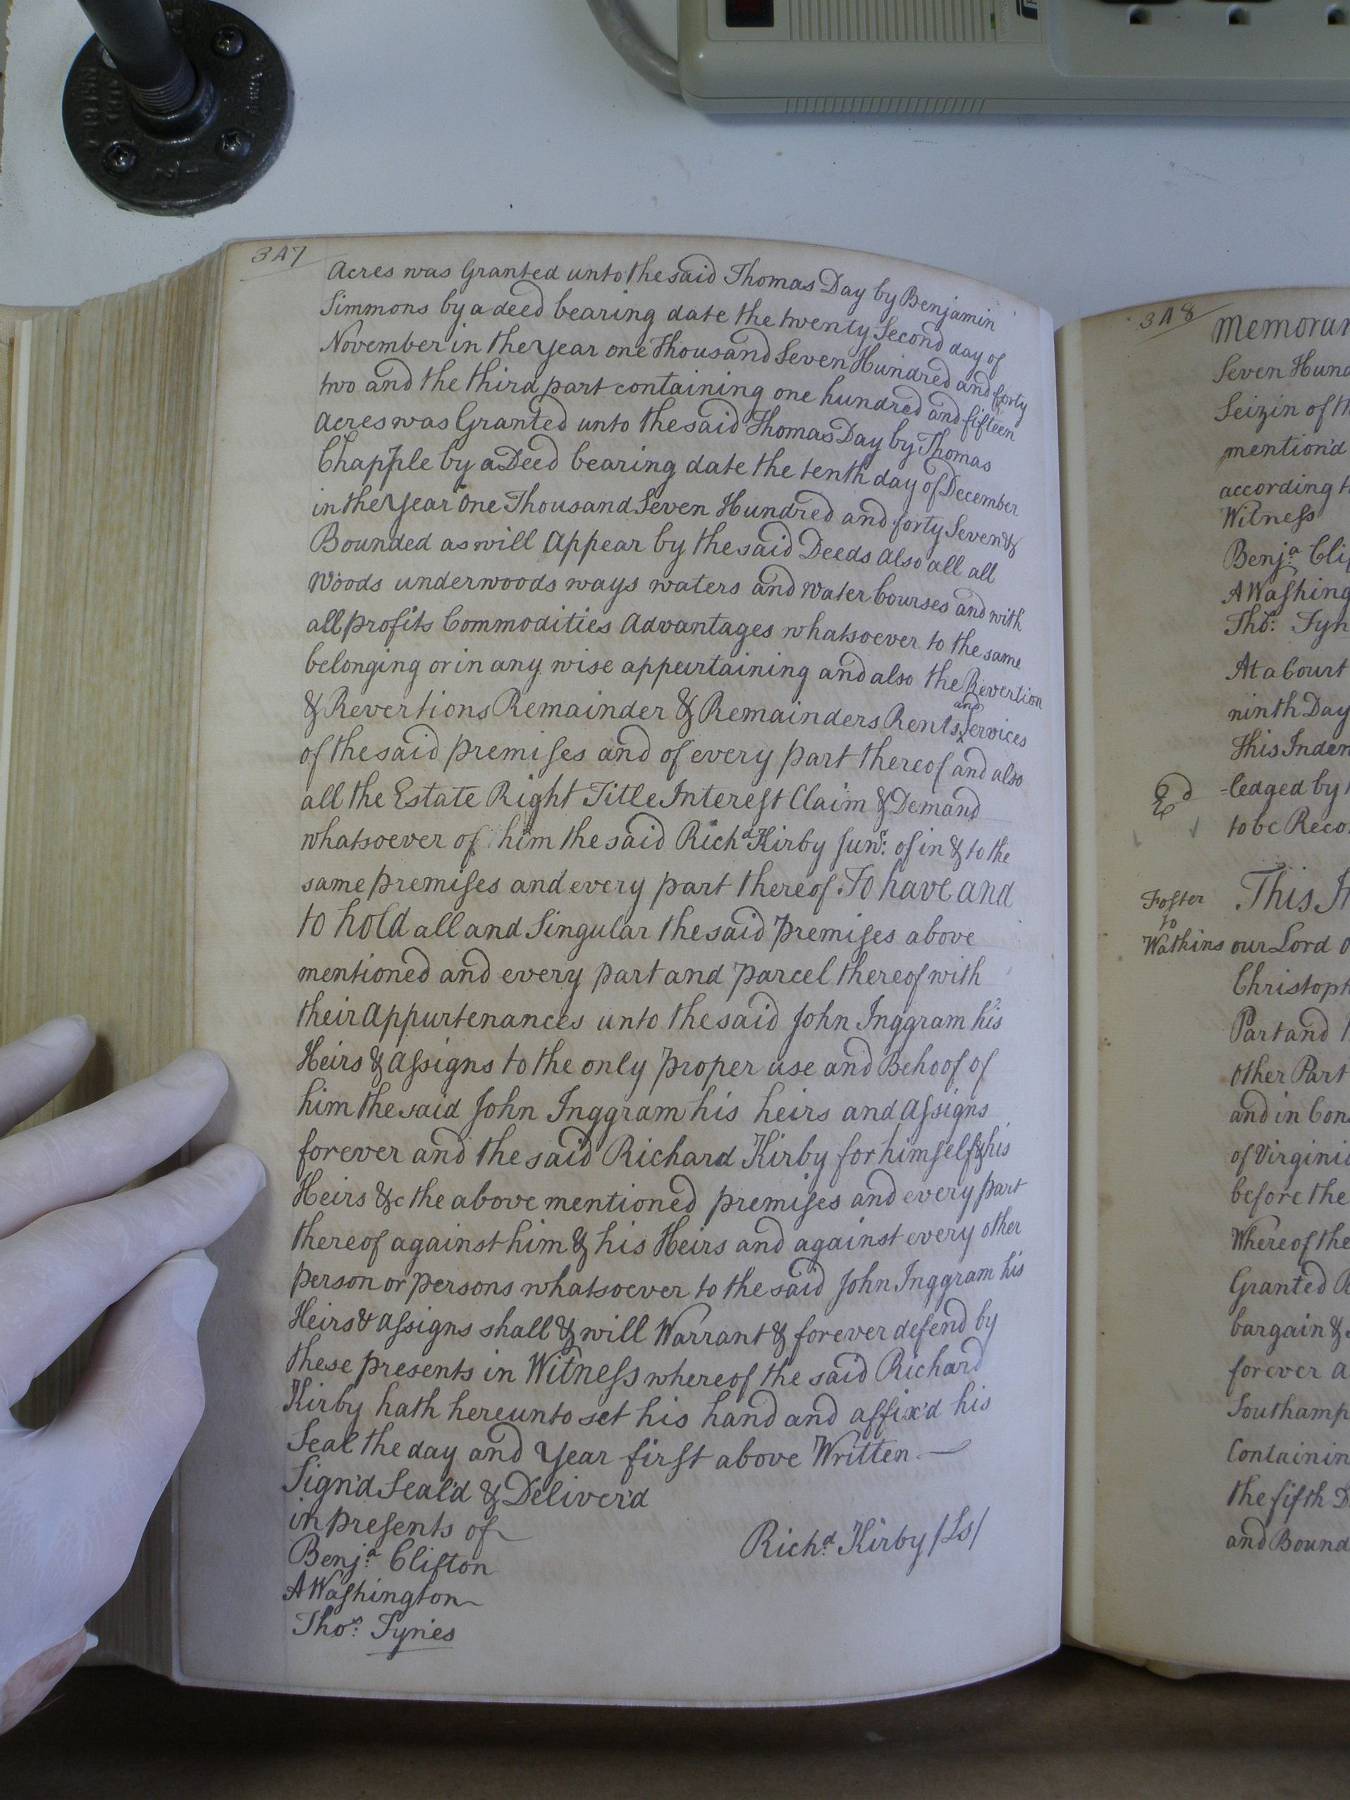 347
Acres was Granted unto the said Thomas Day by Benjamin
Simmons by a deed bearing date the twenty Second day of
November in the year one Thousand Seven Hundred and forty
two and the third part containing one hundred and fifteen
Acres was Granted unto the said Thomas Day by Thomas
Chapple by a Deed bearing date the tenth day of December
in the Year One Thousand Seven Hundred and forty Seven &
Bounded as will Appear by the said Deeds also all all
Woods underwoods ways waters and Water Courses and with
all profits Commodities Advantages whatsoever to the same
belonging or in any wise appurtaining and also the Revertion
& Revertions Remainder & Remainders Rents and Services
of the said premises and of every part thereof and also
all the Estate Right Title Interest Claim & Demand
whatsoever of him the said Richd Kirby Junr: of in & to the
same premises and every part thereof To have and
to hold all and Singular the said Premises above
mentioned and every part and parcel thereof with
their Appurtenances unto the said John Inggram his
Heirs & Assigns to the only proper use and Behoof of
him the said John Inggram his heirs and Assigns
forever and the said Richard Kirby for himself & his
Heirs &c the above mentioned premises and every part
thereof against him & his Heirs and against every other
person or persons whatsoever to the said John Inggram his
Heirs & Assigns shall & will Warrant & forever defend by
these presents in Witness whereof the said Richard
Kirby hath hereunto set his hand and affix'd his
Seal the day and Year first above Written
Sign'd Seal'd & Deliver'd
in presents of
Richd. Kirby /Ls/
Benja. Clifton
A Washington
Thos: Fynes
348
Memoran
Seven Hund
Seizin of th
mention'd
according t
Witness
Benja. Clif
A Washing
Thos: Fyn
At a Court
ninth Day
This Inden
-ledged by
to be Reco
Foster
to
Watkins
This In
our Lord o
Christoph
Part and
Other Part
and in Con
of Virginia
before the
Whereof the
Granted B
bargain &
forever a
Southamp
Containin
the fifth D
and Bound